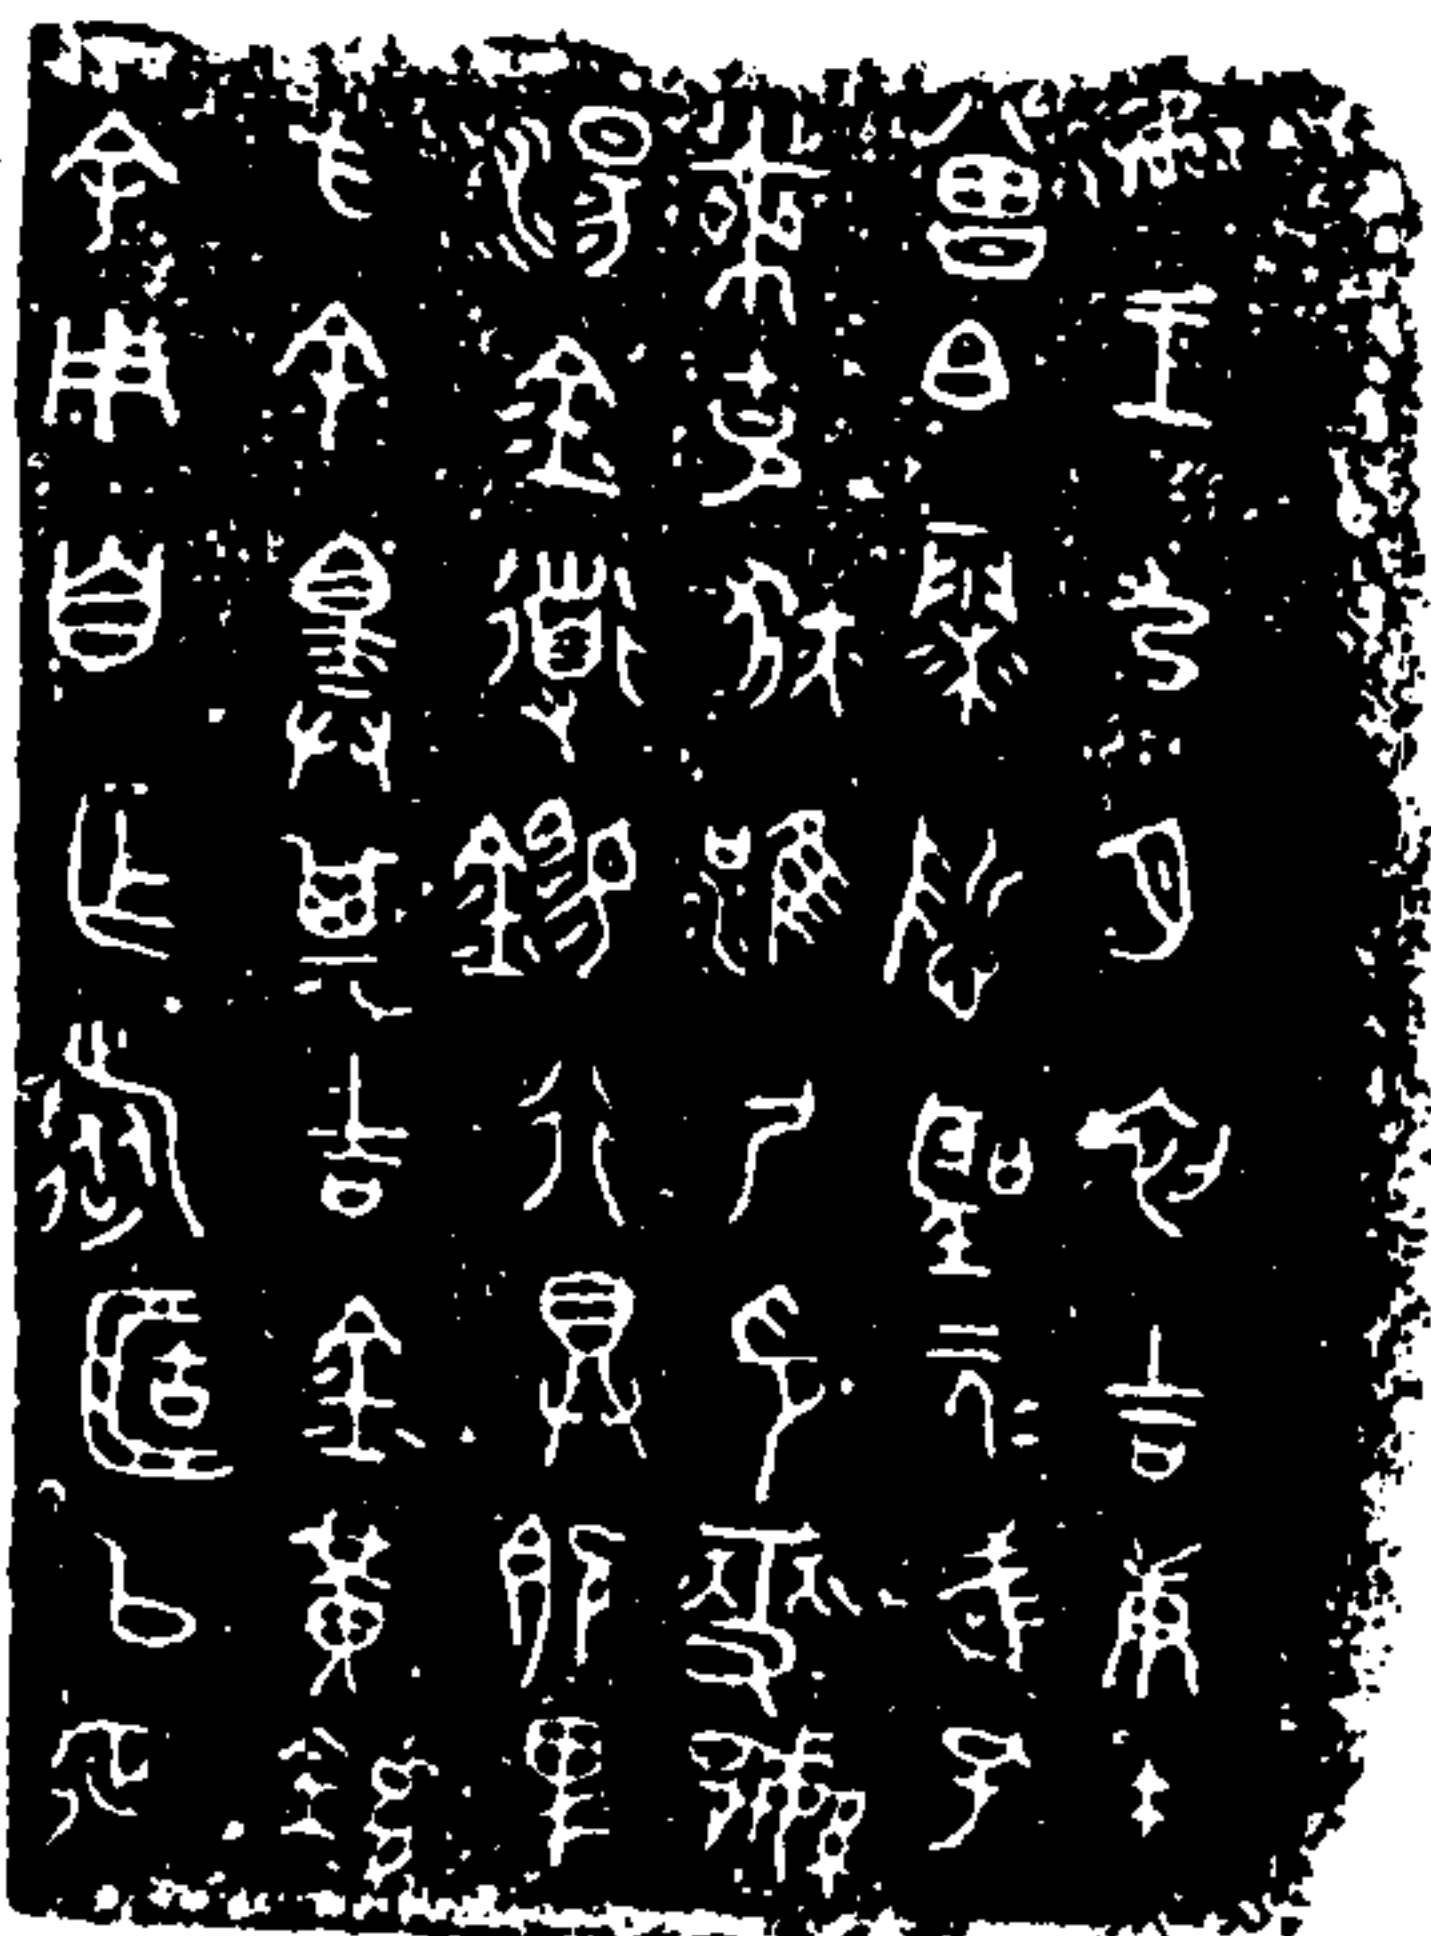 隹王九月初吉庚午
曾白霥哲聖元=武=孔
黹克狄淮尸印燮繁
湯金道錫行具既卑
方余擇其吉金黃鋁
余用自乍旅簠以征